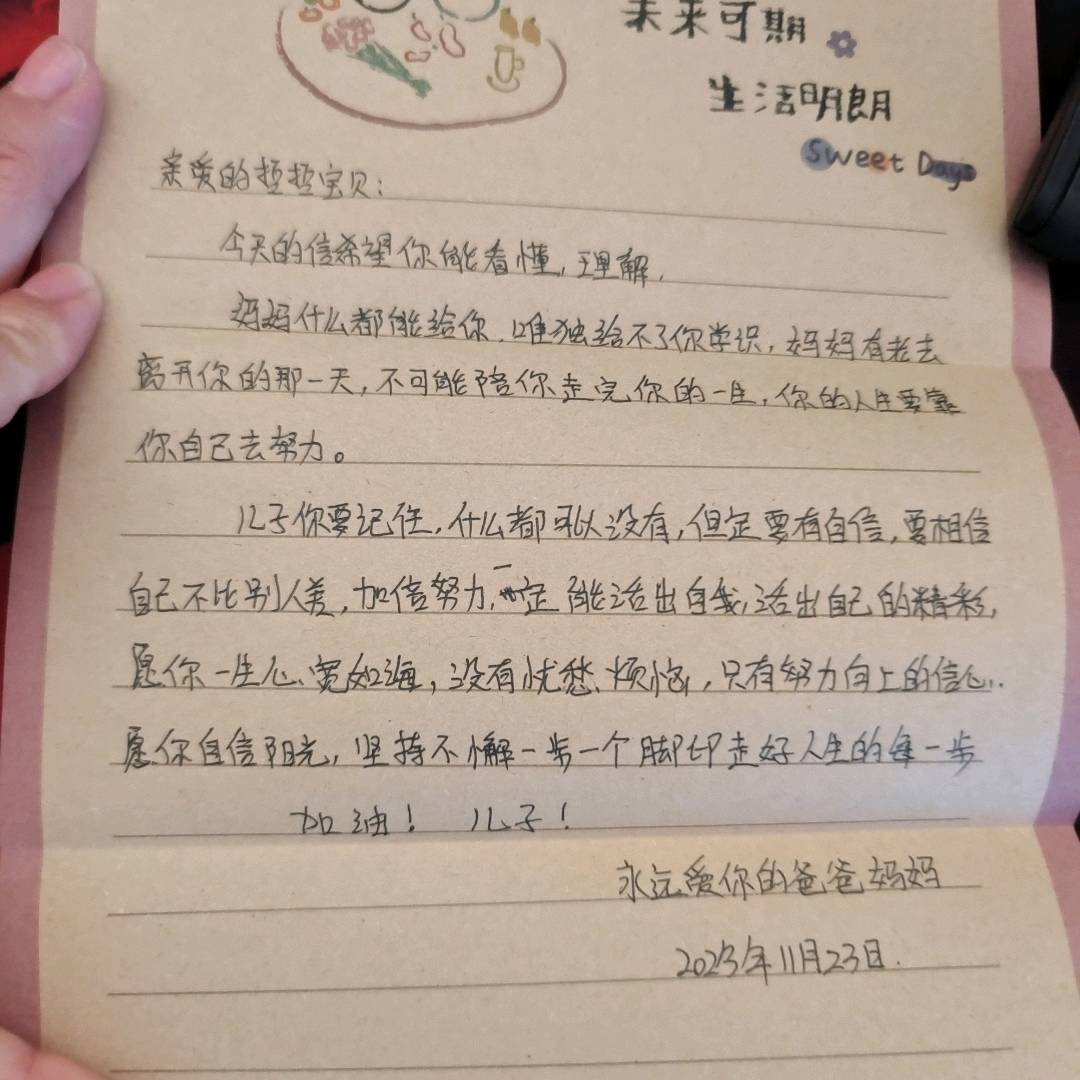 未来可期
生活明朗
Sweet Days
亲爱的哲哲宝贝：
今天的信希望你能看懂，理解，
妈妈什么都能给你，唯独给不了你学识，妈妈有老去
离开你的那一天，不可能陪你走完你的一生，你的人生要靠
你自己去努力。
儿子你要记住，什么都可以没有，但定要有自信，要相信
自己不比别人差，加倍努力，一定能活出自我，活出自己的精彩，
愿你一生心宽如海，没有忧愁、烦恼，只有努力向上的信心..
愿你自信阳光，坚持不懈一步一个脚印走好人生的每一步
加油！ 儿子！
永远爱你的爸爸妈妈
2023年11月23日.